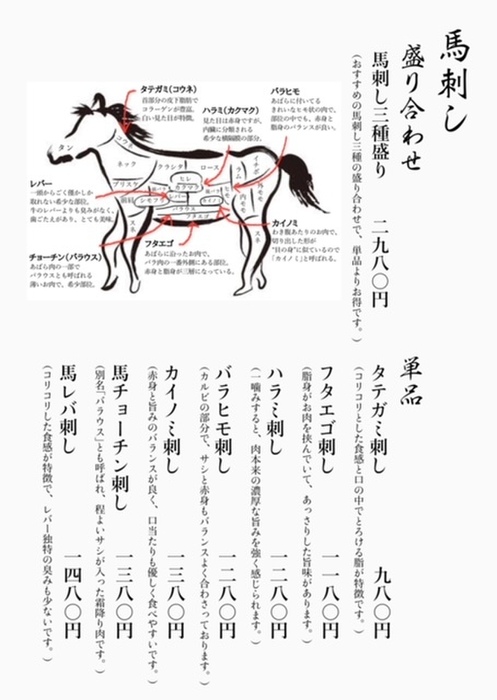 馬刺し
盛り合わせ
馬刺し三種盛り 二九八〇円
(おすすめの馬刺し三種の盛り合わせで、単品よりお得です。)
タテガミ(コウネ)
首部分の皮下脂肪で
コラーゲンが豊富。
白い見た目が特徴。
ハラミ(カクマク)
見た目は赤身ですが、
内臓に分類される
希少な横隔膜の部分。
バラヒモ
あばらに付いてる
きれいなヒモ状の肉で、
部位の中でも、赤身と
脂身のバランスが良い。
レバー
一頭からごく僅かしか
取れない希少な部位。
牛のレバーよりも臭みがなく、
歯ごたえがあり、とても美味。
チョーチン(バラウス)
あばら肉の一部で
バラウスとも呼ばれる
薄いお肉で、希少部位。
フタエゴ
あばらに沿ったお肉で、
バラ肉の一番外側にある部位。
赤身と脂身が三層になっている。
カイノミ
わき腹あたりのお肉で、
切り出した形が
"目の身"に似ているので
「カイノミ」と呼ばれる。
タン
コウネ
ネック
クラシタ
ロース
ラム
イチボ
ブリスケ
ヒレ
カクマク
シモフリ
バラウス
フタエゴ
カイノミ
ヒモ
内モモ
外モモ
前肩
スネ
スネ
単品
タテガミ刺し 九八〇円
(コリコリとした食感と口の中でとろける脂が特徴です。)
フタエゴ刺し 一一八〇円
(脂身がお肉を挟んでいて、あっさりした旨味があります。)
ハラミ刺し 一二八〇円
(一噛みすると、肉本来の濃厚な旨みを強く感じられます。)
バラヒモ刺し 一二八〇円
(カルビの部分で、サシと赤身もバランスよく合わさっております。)
カイノミ刺し 一三八〇円
(赤身と旨みのバランスが良く、口当たりも優しく食べやすいです。)
馬チョーチン刺し 一三八〇円
(別名「バラウス」とも呼ばれ、程よいサシが入った霜降り肉です。)
馬レバ刺し 一四八〇円
(コリコリした食感が特徴で、レバー独特の臭みも少ないです。)